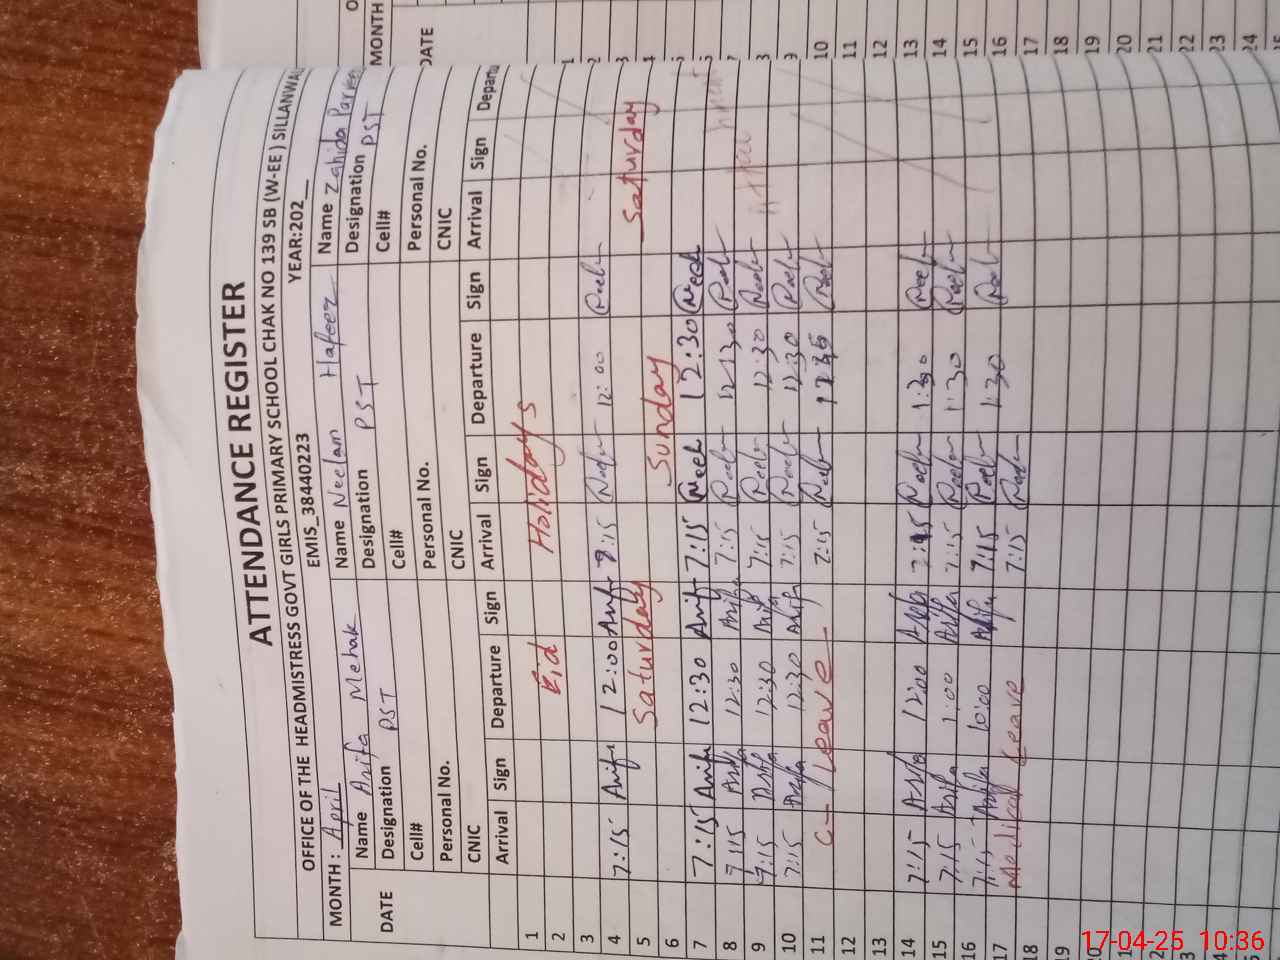 ATTENDANCE REGISTER
OFFICE OF THE HEADMISTRESS GOVT GIRLS PRIMARY SCHOOL CHAK NO 139 SB (W-EE ) SILLANWA
EMIS_38440223
MONTH : April YEAR:202__
DATE Name Arifa Mehak Name Neelam Hafeez Name Zahida Parveen
Designation PST Designation PST Designation PST
Cell# Cell# Cell#
Personal No. Personal No. Personal No.
CNIC CNIC CNIC
Arrival Sign Departure Sign Arrival Sign Departure Sign Arrival Sign Depart
1 Eid Holidays
2
3
4 7:15 Arifa 12:00 Arifa 7:15 Neelam 12:00 Neelam
5 Saturday Saturday
6 Sunday
7 7:15 Arifa 12:30 Arifa 7:15 Neel 12:30 Neel
8 7:15 Arifa 12:30 Arifa 7:15 Neelam 12:30 Neelam
9 7:15 Arifa 12:30 Arifa 7:15 Neelam 12:30 Neelam
10 7:15 Arifa 12:30 Arifa 7:15 Neelam 12:30 Neelam
11 C- Leave 7:15 Neelam Neelam
12
13
14 7:15 Arifa 12:00 Arifa 7:15 Neelam 1:30 Neelam
15 7:15 Arifa 1:00 Arifa 7:15 Neelam 1:30 Neelam
16 7:15 Arifa 10:00 Arifa 7:15 Neelam 1:30 Neelam
17 Medical Leave 7:15 Neelam
18
19
20
21
22
23
24
MONTH
DATE
1
2
3
4
5
6
7
8
9
10
11
12
13
14
15
16
17
18
19
20
21
22
23
24
17-04-25 10:36